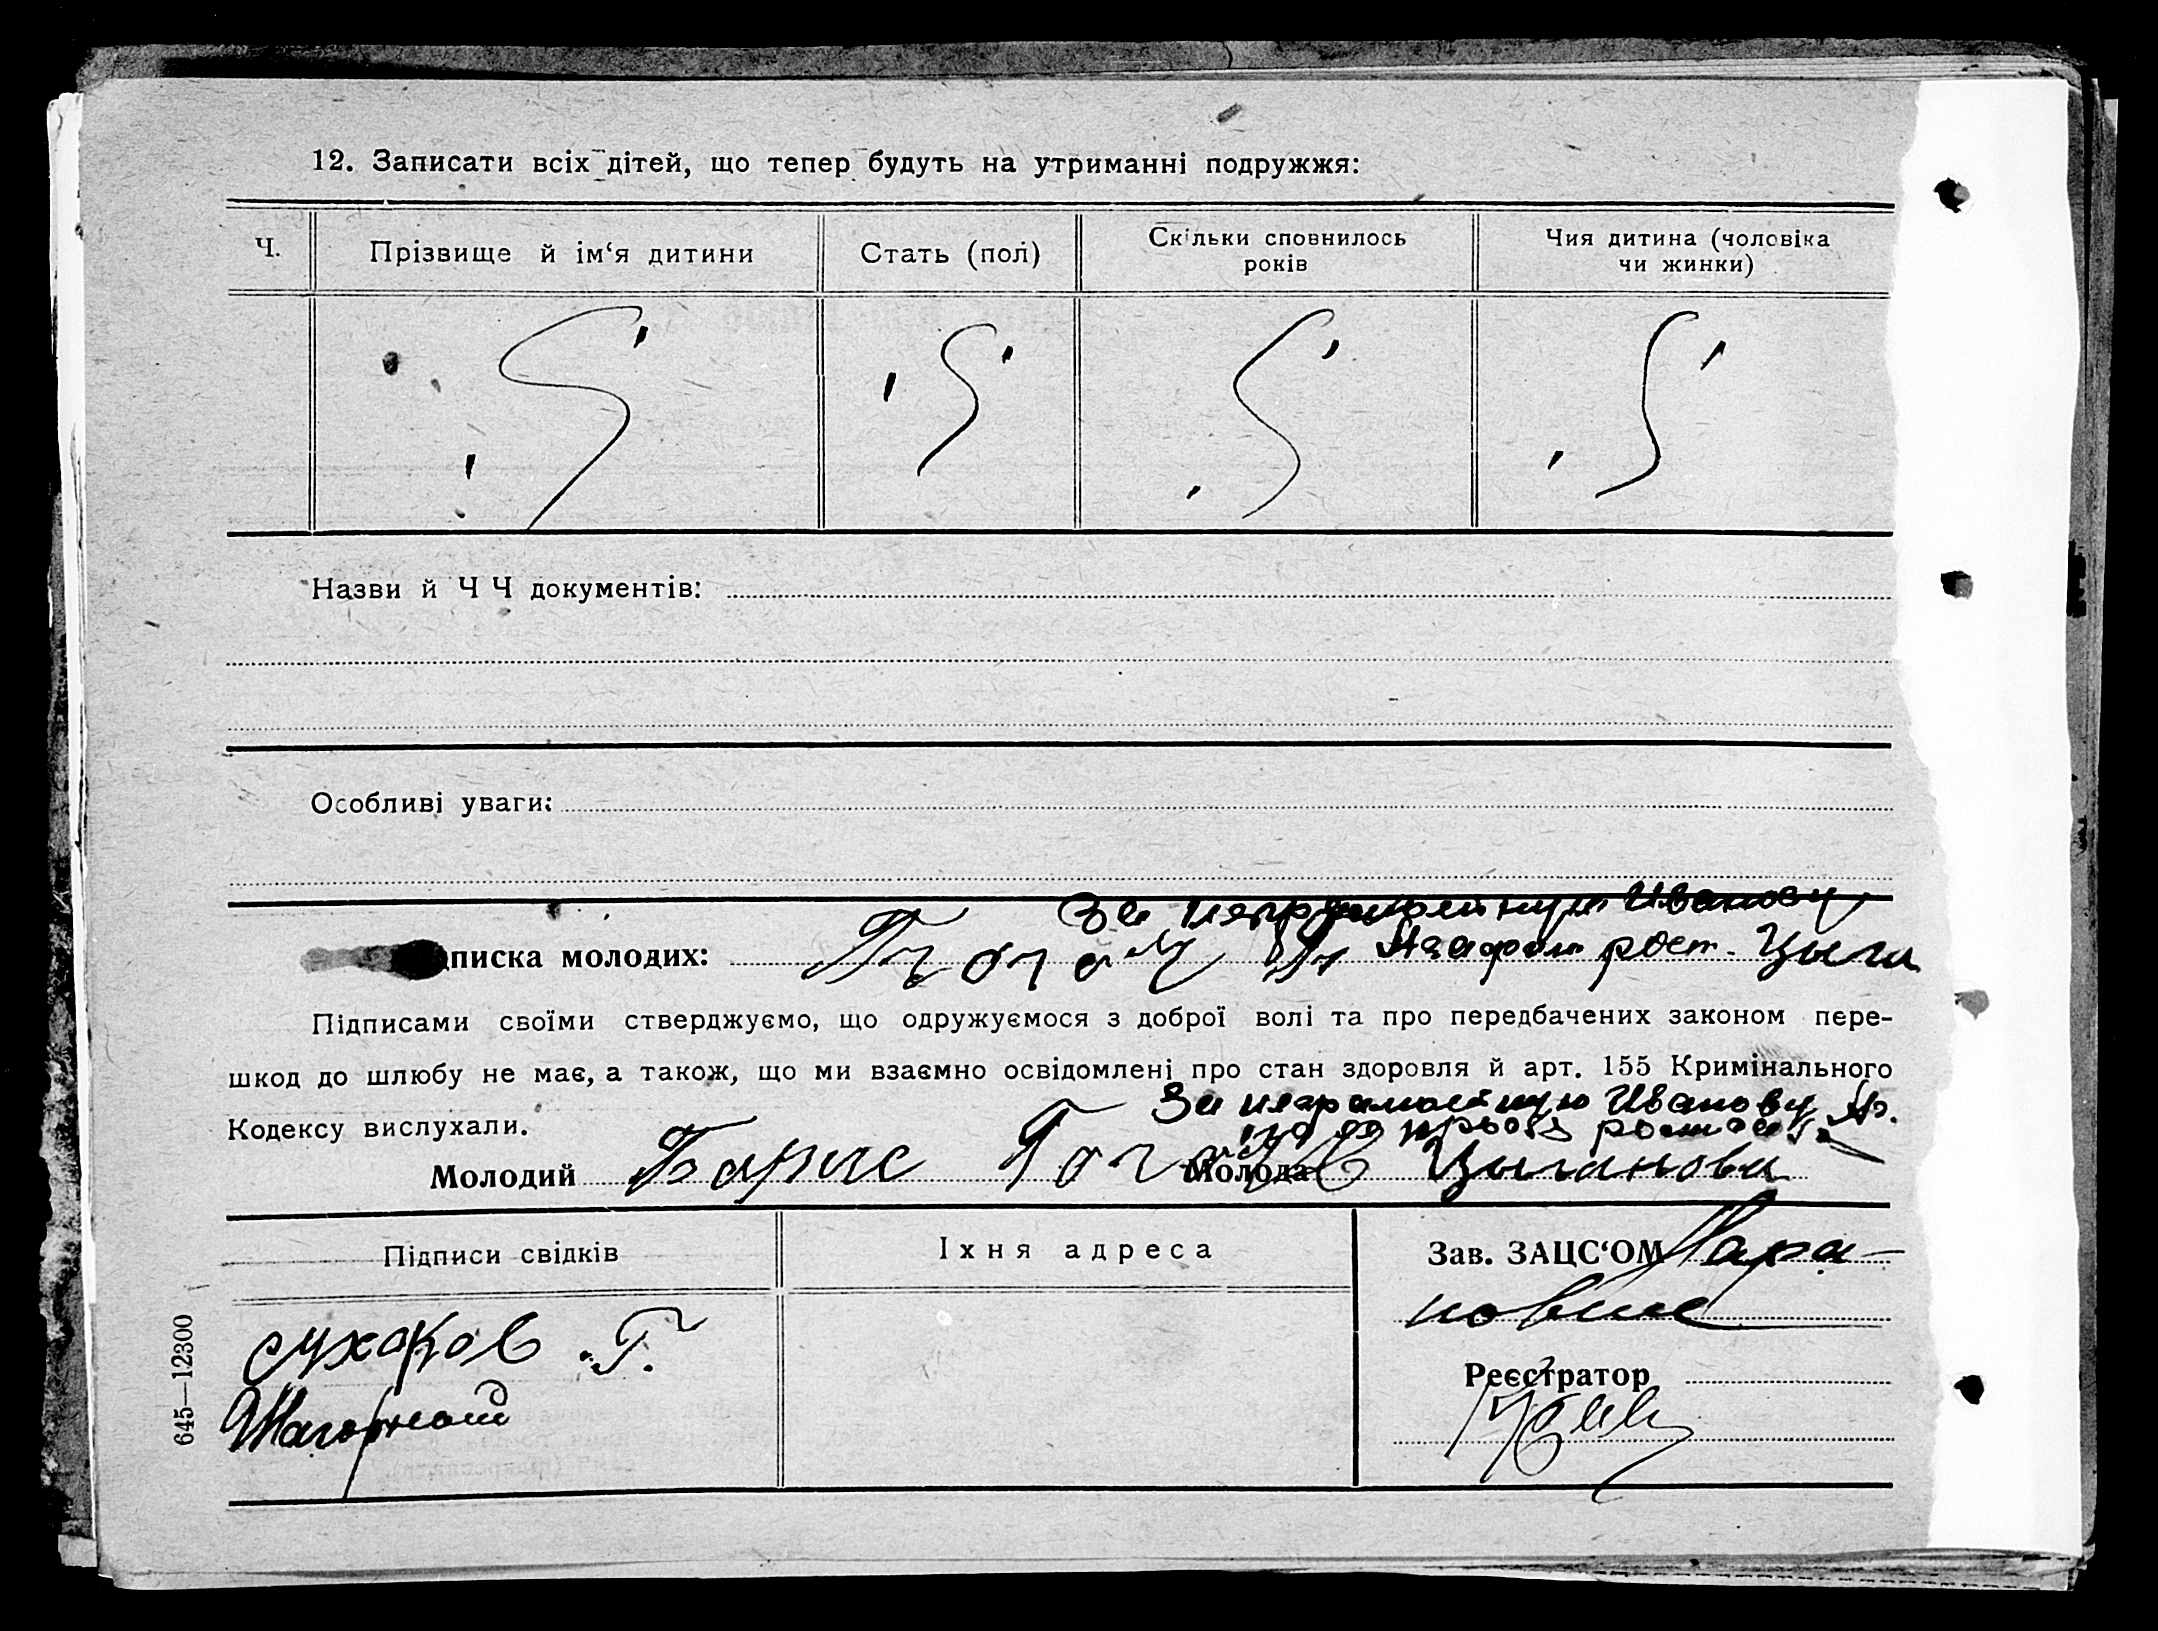 12. Записати всіх дітей, що тепер будуть на утриманні подружжя:
Ч.
Прізвище й ім‘я дитини
Стать (пол)
Скільки сповнилось
років
Чия дитина (чоловіка
чи жинки)
Назви й Ч Ч документів:
Особливі уваги:
За неграмотную Иванову
писка молодих: рост. Цыга
Підписами своїми стверджуємо, що одружуємося з доброї волі та про передбачених законом пере-
шкод до шлюбу не має, а також, що ми взаємно освідомлені про стан здоровля й арт. 155 Кримінального
Кодексу вислухали.
За неграмотную Иванову
Молодий Борис Молода Цыганова
Підписи свідків
Їхня адреса
Зав. ЗАЦС‘ОМ
Сухоков Г.
Реєстратор
645—12300